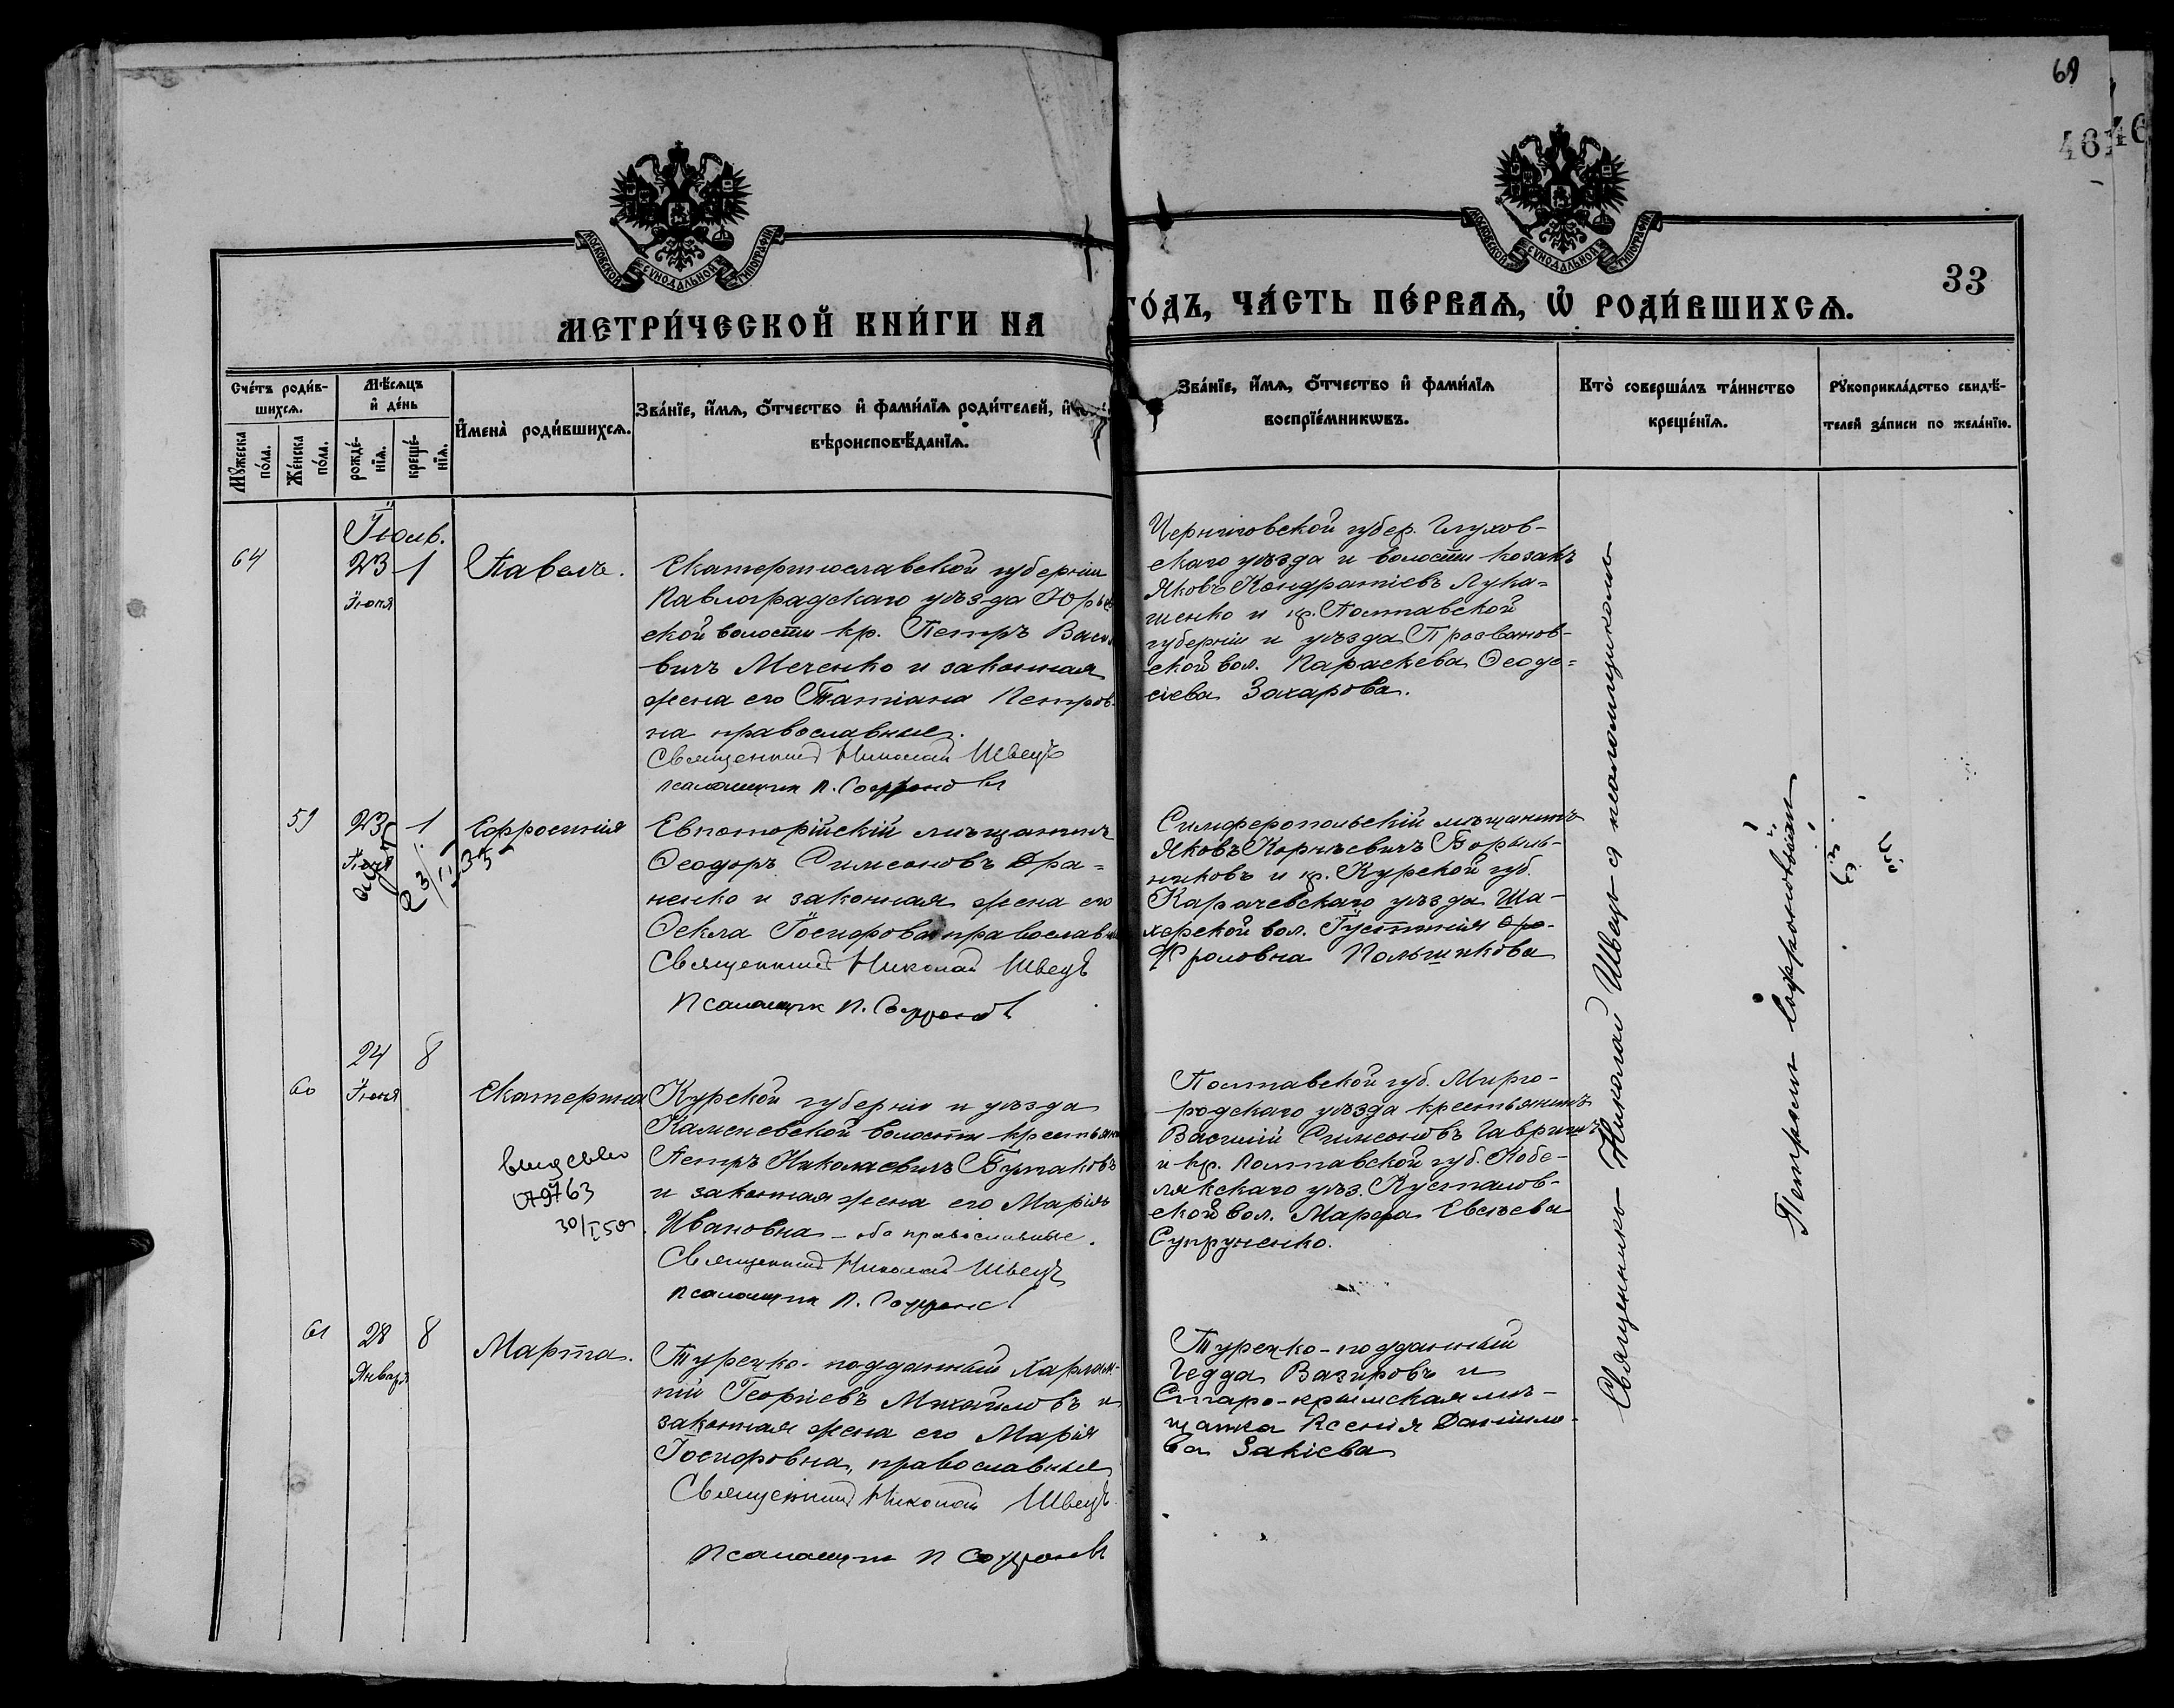 69
46
46
МОСКОВСКОЙ СѴНОДАЛЬНОЙ ТИПОГРАФІИ
МОСКОВСКОЙ СѴНОДАЛЬНОЙ ТИПОГРАФІИ
33
МЕТРИ́ЧЕСКОЙ КНИ́ГИ НА
ГО́ДЪ, ЧА́СТЬ ПЕ́РВАѦ, Ѡ҆ РОДИ́ВШИХСѦ.
Сче́тъ роди́в-
шихсѧ.
Мꙋ́жеска
по́ла.
Же́нска
по́ла.
Мѣ́сѧцъ
и҆ де́нь
рожде́-
нїѧ.
креще́-
нїѧ.
И҆мена̀ роди́вшихсѧ.
Зва́нїе, и҆́мѧ, ѻ҆́тчество и҆ фами́лїѧ роди́телей, и҆
вѣроисповѣ́данїѧ.
Зва́нїе, и҆́мѧ, ѻ҆́тчество и҆ фами́лїѧ
воспрїе́мникѡвъ.
Кто̀ соверша́лъ та́инство
креще́нїѧ.
Рꙋкоприкла́дство свидѣ́-
телей за́писи по жела́нїю.
Іюль.
64
23
1
Іюня
Павелъ.
Екатеринославской губерніи
Павлоградскаго уѣзда Юрьев
ской волости кр. Петръ Васи
вичъ Меченко и законная
жена его Татіана Петров
на православные.
Священникъ Николай Швецъ
псаломщик П. Софронов
Черниговской губер. Глухов-
скаго уѣзда и волости козакъ
Яковъ Кондратіевъ Лука-
шенко и кр. Полтавской
губерніи и уѣзда
ской вол. Параскева Ѳеодо-
сіева Захарова.
59
23
1
Іюня
Ефросинія
Евпаторійскій мѣщанинъ
Ѳеодоръ Симеоновъ
ненко и законная жена его
Ѳекла Іосифова православ
Священникъ Николай Швецъ
Псаломщик П. Софронов
Симферопольскій мѣщанинъ
Яковъ Корнѣевичъ
никовъ и кр. Курской губ.
Карачевскаго уѣзда Ша-
херской вол. Іустинія
Фроловна
60
24
8
Іюня
Екатерина
30/I 50
Курской губерніи и уѣзда
Каменевской волости крестьянин
Петръ Николаевичъ Бутаковъ
и законная жена его Марія
Ивановна - оба православные.
Священникъ Николай Швецъ
псаломщик П. Софронов
Полтавской губ. Мирго-
родскаго уѣзда крестьянинъ
Василій Симеоновъ Гавришъ
и кр. Полтавской губ. Кобе-
лякскаго уѣз. Кустолов-
ской вол. Марѳа Евсѣева
Супруненко.
61
28
8
Января
Марта.
Турецко-подданный Харлам-
пій Георгіевъ Михайловъ и
законная жена его Марія
Іосифовна, православные
Священникъ Николай Швецъ
Псаломщик П Софронов
Турецко-подданный
Гедда Вазировъ и
Старо-крымская мѣ-
щанка Ксенія Данило-
ва Закіева
Священникъ Николай Швецъ с псаломщикомъ
Петромъ Софроновымъ